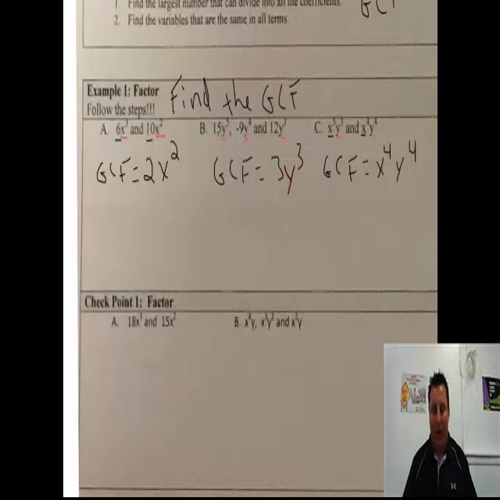 1. Find the largest number that can divide into all the coefficients.
GCF
2. Find the variables that are the same in all terms.
Example 1: Factor
Find the GCF
Follow the steps!!!
A. 6x³ and 10x² B. 15y⁵, -9y⁴ and 12y³ C. and
GCF=2x² GCF=3y³ GCF=x⁴y⁴
Check Point 1: Factor
A. 18x³ and 15x² B. and